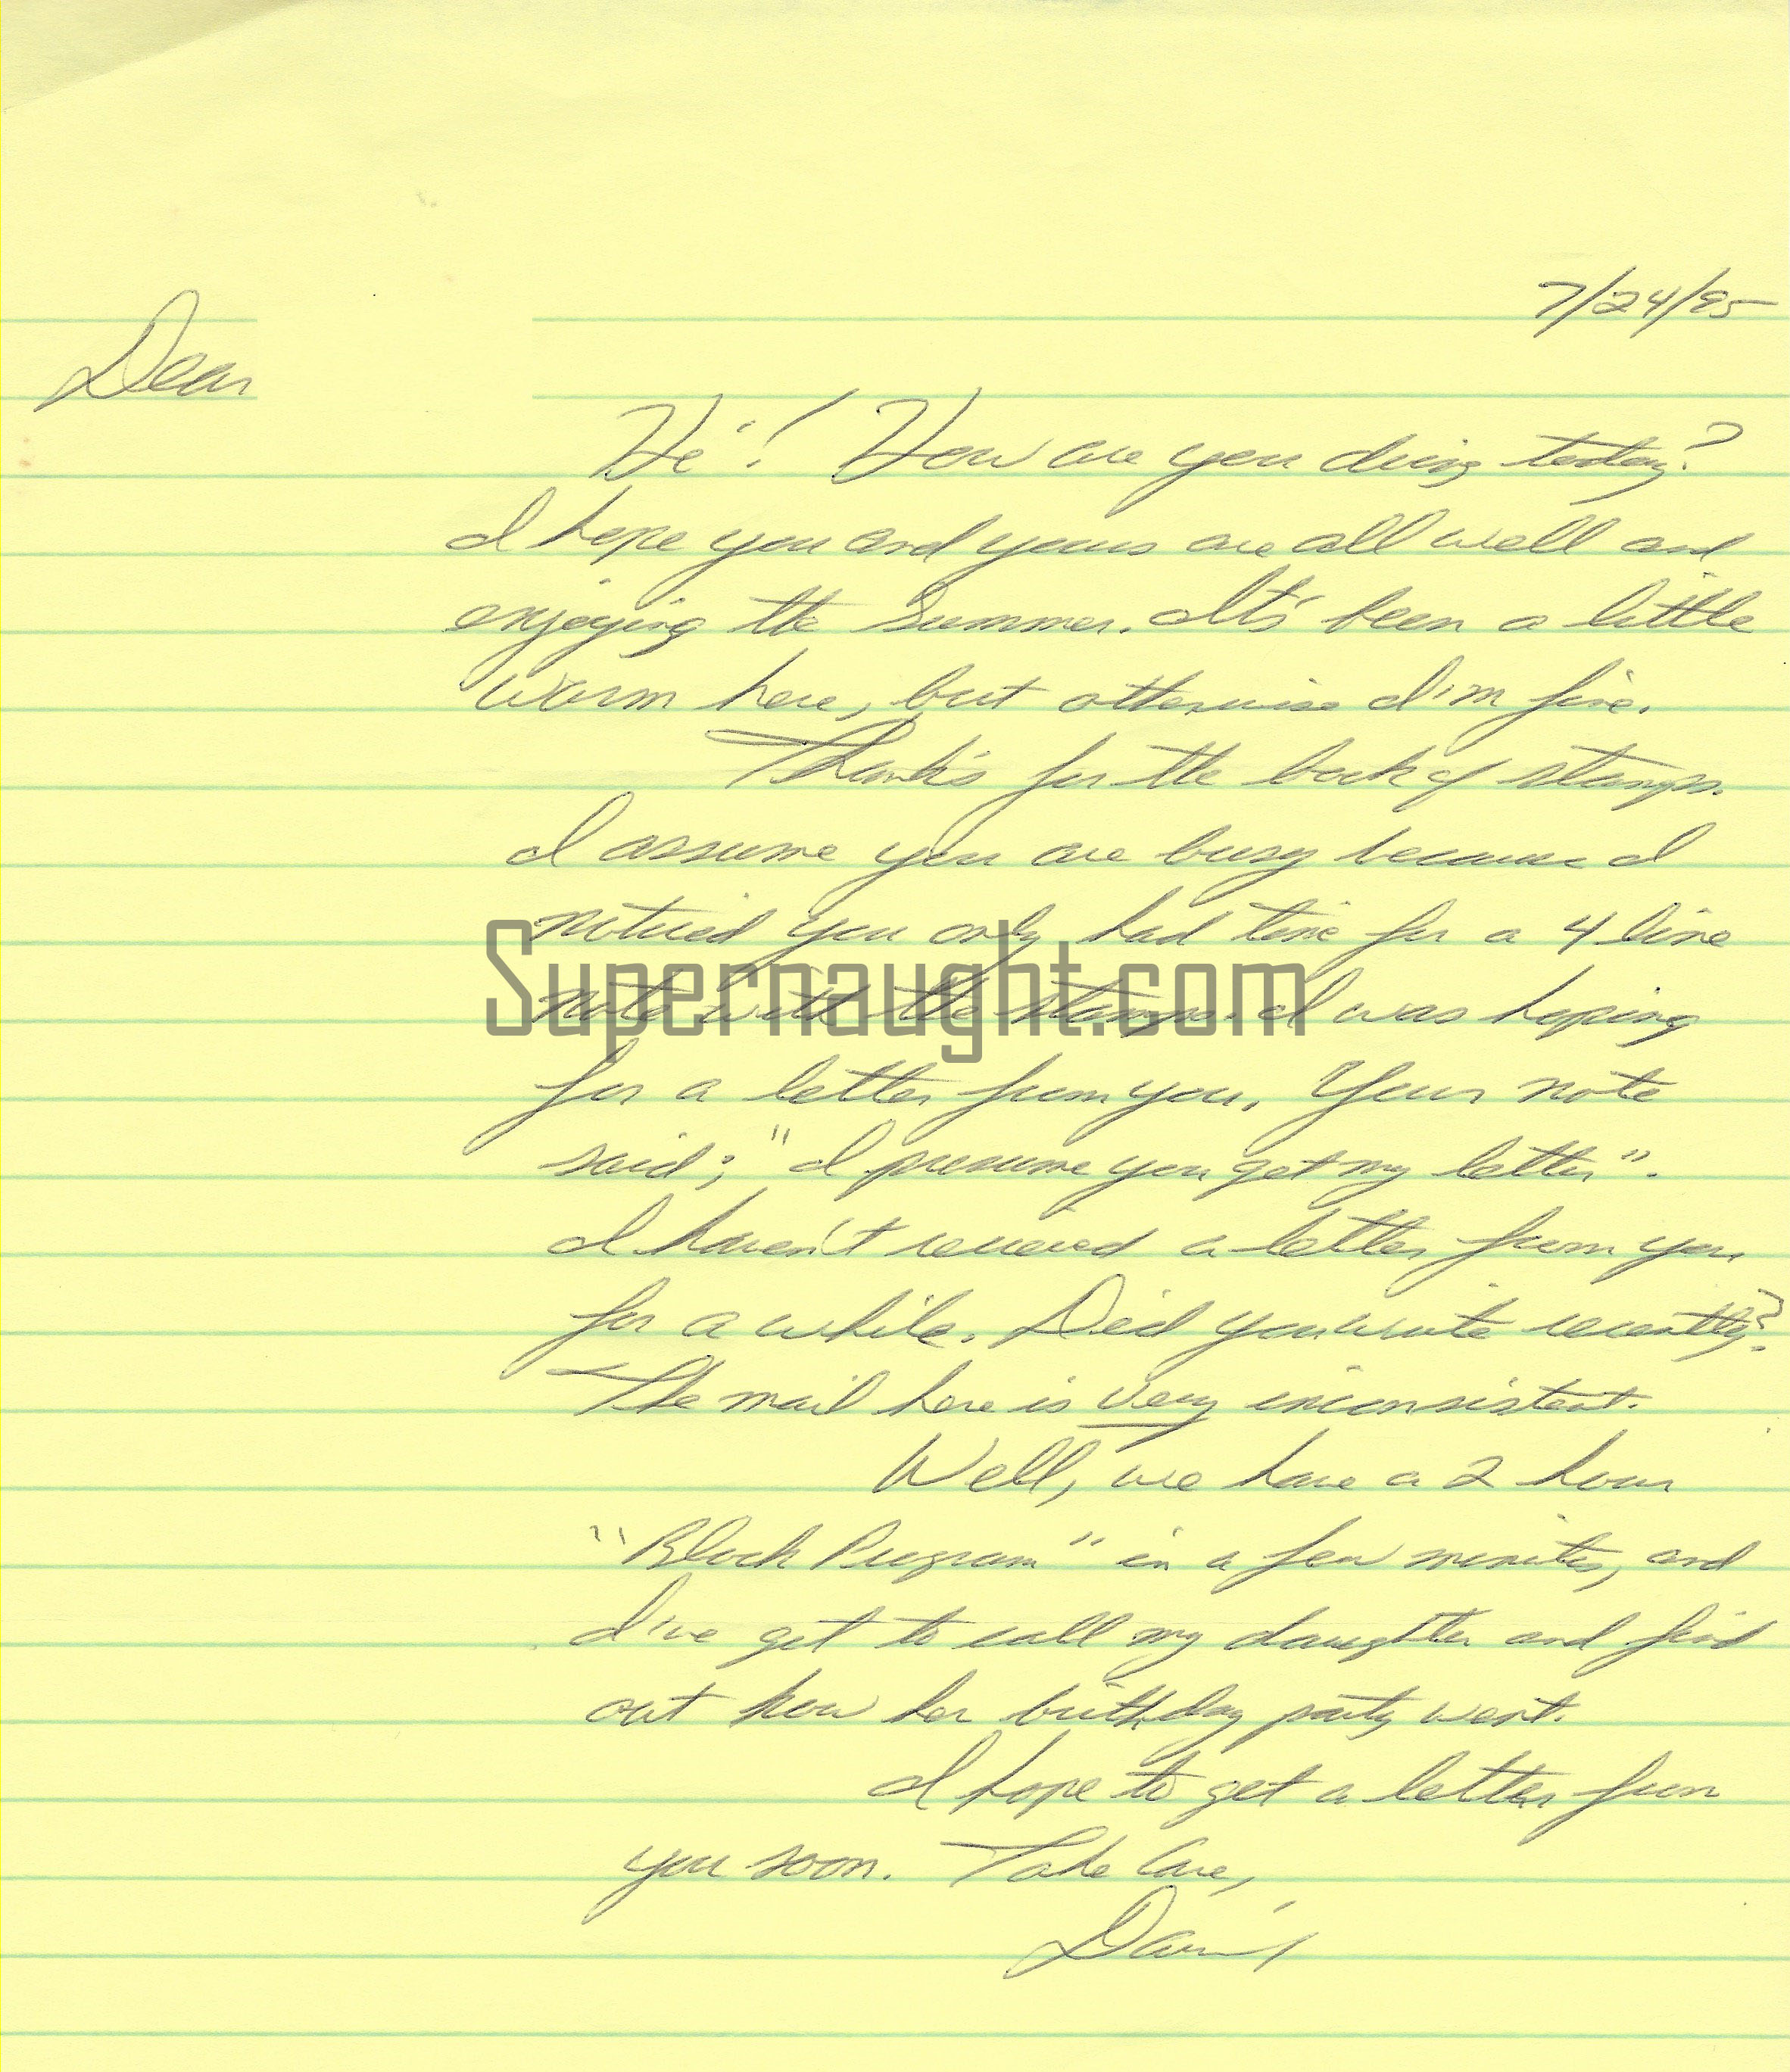 7/24/95
Dear
Hi! How are you doing today?
I hope you and yours are all well and
enjoying the summer. It's been a little
warm here, but otherwise I'm fine.
Thanks for the book of stamps.
I assume you are busy because I
noticed you only had time for a 4 line
note with the stamps. I was hoping
Supernaught.com
for a letter from you. Your note
said; "I presume you got my letter".
I haven't received a letter from you
for a while. Did you write recently?
The mail here is very inconsistent.
Well, we have a 2 hour
"Block Program" in a few minutes, and
I've got to call my daughter and find
out how her birthday party went.
I hope to get a letter from
you soon. Take Care,